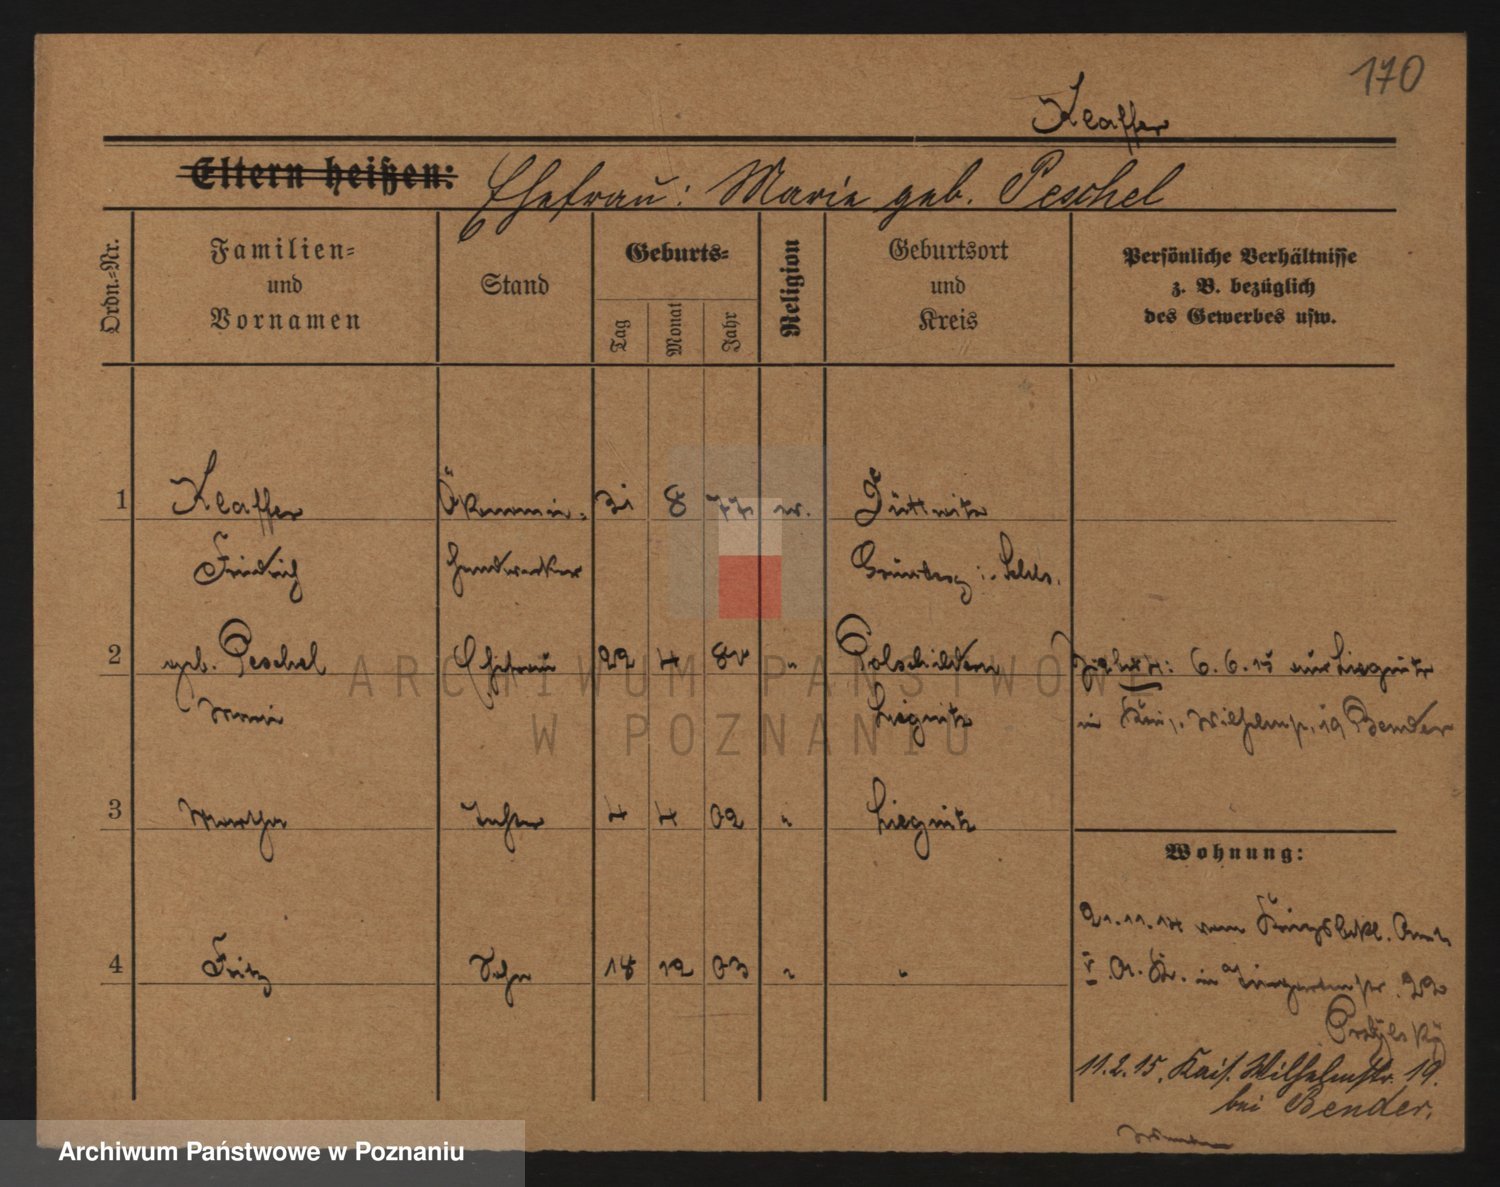 170
Klaffer
Eltern heißen: Ehefrau: Marie geb. Peschel
Ordn.=Nr.
Familien=
und
Vornamen
Stand
Geburts=
Tag
Monat
Jahr
Religion
Geburtsort
und
Kreis
Persönliche Verhältnisse
z. B. bezüglich
des Gewerbes usw.
1 Klaffer 31 8 77 ev.
Friedrich Handwerker Grünberg i. Schls.
2 geb. Peschel Ehefrau 22 4 Polschildern 6. 6. 15 Liegnitz
Marie Liegnitz in Kais. Wilhelmstr. 19 Bender
3 Martha Tochter 4 4 02 " Liegnitz
Wohnung:
21.11.14 vom
4 Fritz Sohn 18 12 03 " " V. A. K. in Tiergartenstr. 22
11.2.15, Kais. Wilhelmstr. 19.
bei Bender.
ARCHIWUM PAŃSTWOWE
W POZNANIU
Archiwum Państwowe w Poznaniu